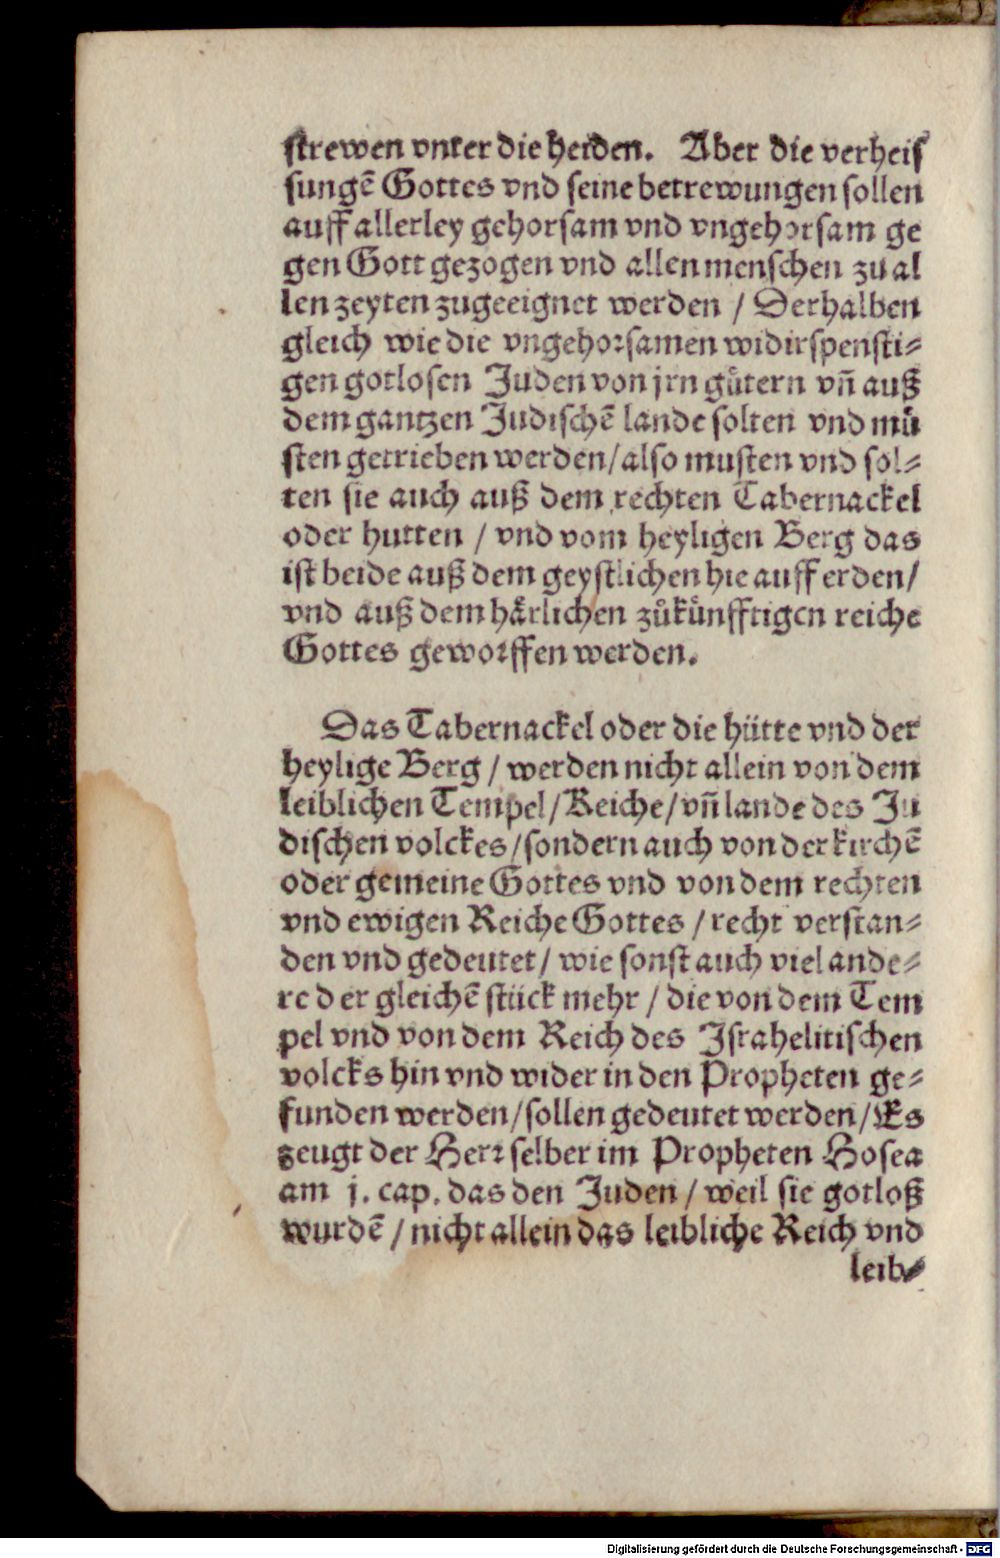 strewen vnter die heiden. Aber die verheis
sungē Gottes vnd seine betrewungen sollen
auff allerley gehorsam vnd vngehorsam ge
gen Gott gezogen vnd allen menschen zu al
len zeyten zugeeignet werden / Derhalben
gleich wie die vngehorsamen widirspensti⸗
gen gotlosen Juden von jrn guͤtern vñ auß
dem gantzen Judischē lande solten vnd muͤ
sten getrieben werden/ also musten vnd sol⸗
ten sie auch auß dem rechten Tabernackel
oder hutten / vnd vom heyligen Berg das
ist beide auß dem geystlichen hie auff erden/
vnd auß dem haͤrlichen zuͦkuͤnfftigen reiche
Gottes geworffen werden.
Das Tabernackel oder die hütte vnd der
heylige Berg / werden nicht allein von dem
leiblichen Tempel/ Reiche/ vñ lande des Ju
dischen volckes/ sondern auch von der kirchē
oder gemeine Gottes vnd von dem rechten
vnd ewigen Reiche Gottes / recht verstan⸗
den vnd gedeutet/ wie sonst auch viel ande⸗
re der gleichē stück mehr / die von dem Tem
pel vnd von dem Reich des Israhelitischen
volcks hin vnd wider in den Propheten ge⸗
funden werden/ sollen gedeutet werden/ Es
zeugt der Herr selber im Propheten Hosea
am j. cap. das den Juden / weil sie gotloß
wurdē / nicht allein das leibliche Reich vnd
leib⸗
Digitalisierung gefördert durch die Deutsche Forschungsgemeinschaft - DFG